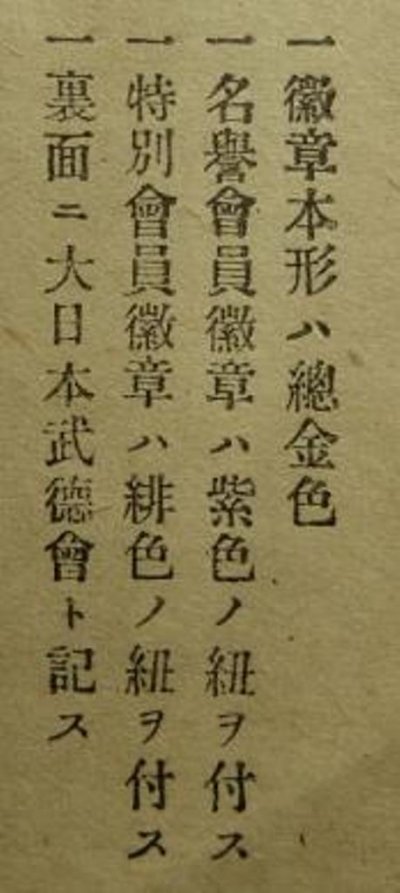 一徽章本形ハ總金色
一名譽會員徽章ハ紫色ノ紐ヲ付ス
一特別會員徽章ハ緋色ノ紐ヲ付ス
一裏面ニ大日本武德會ト記ス